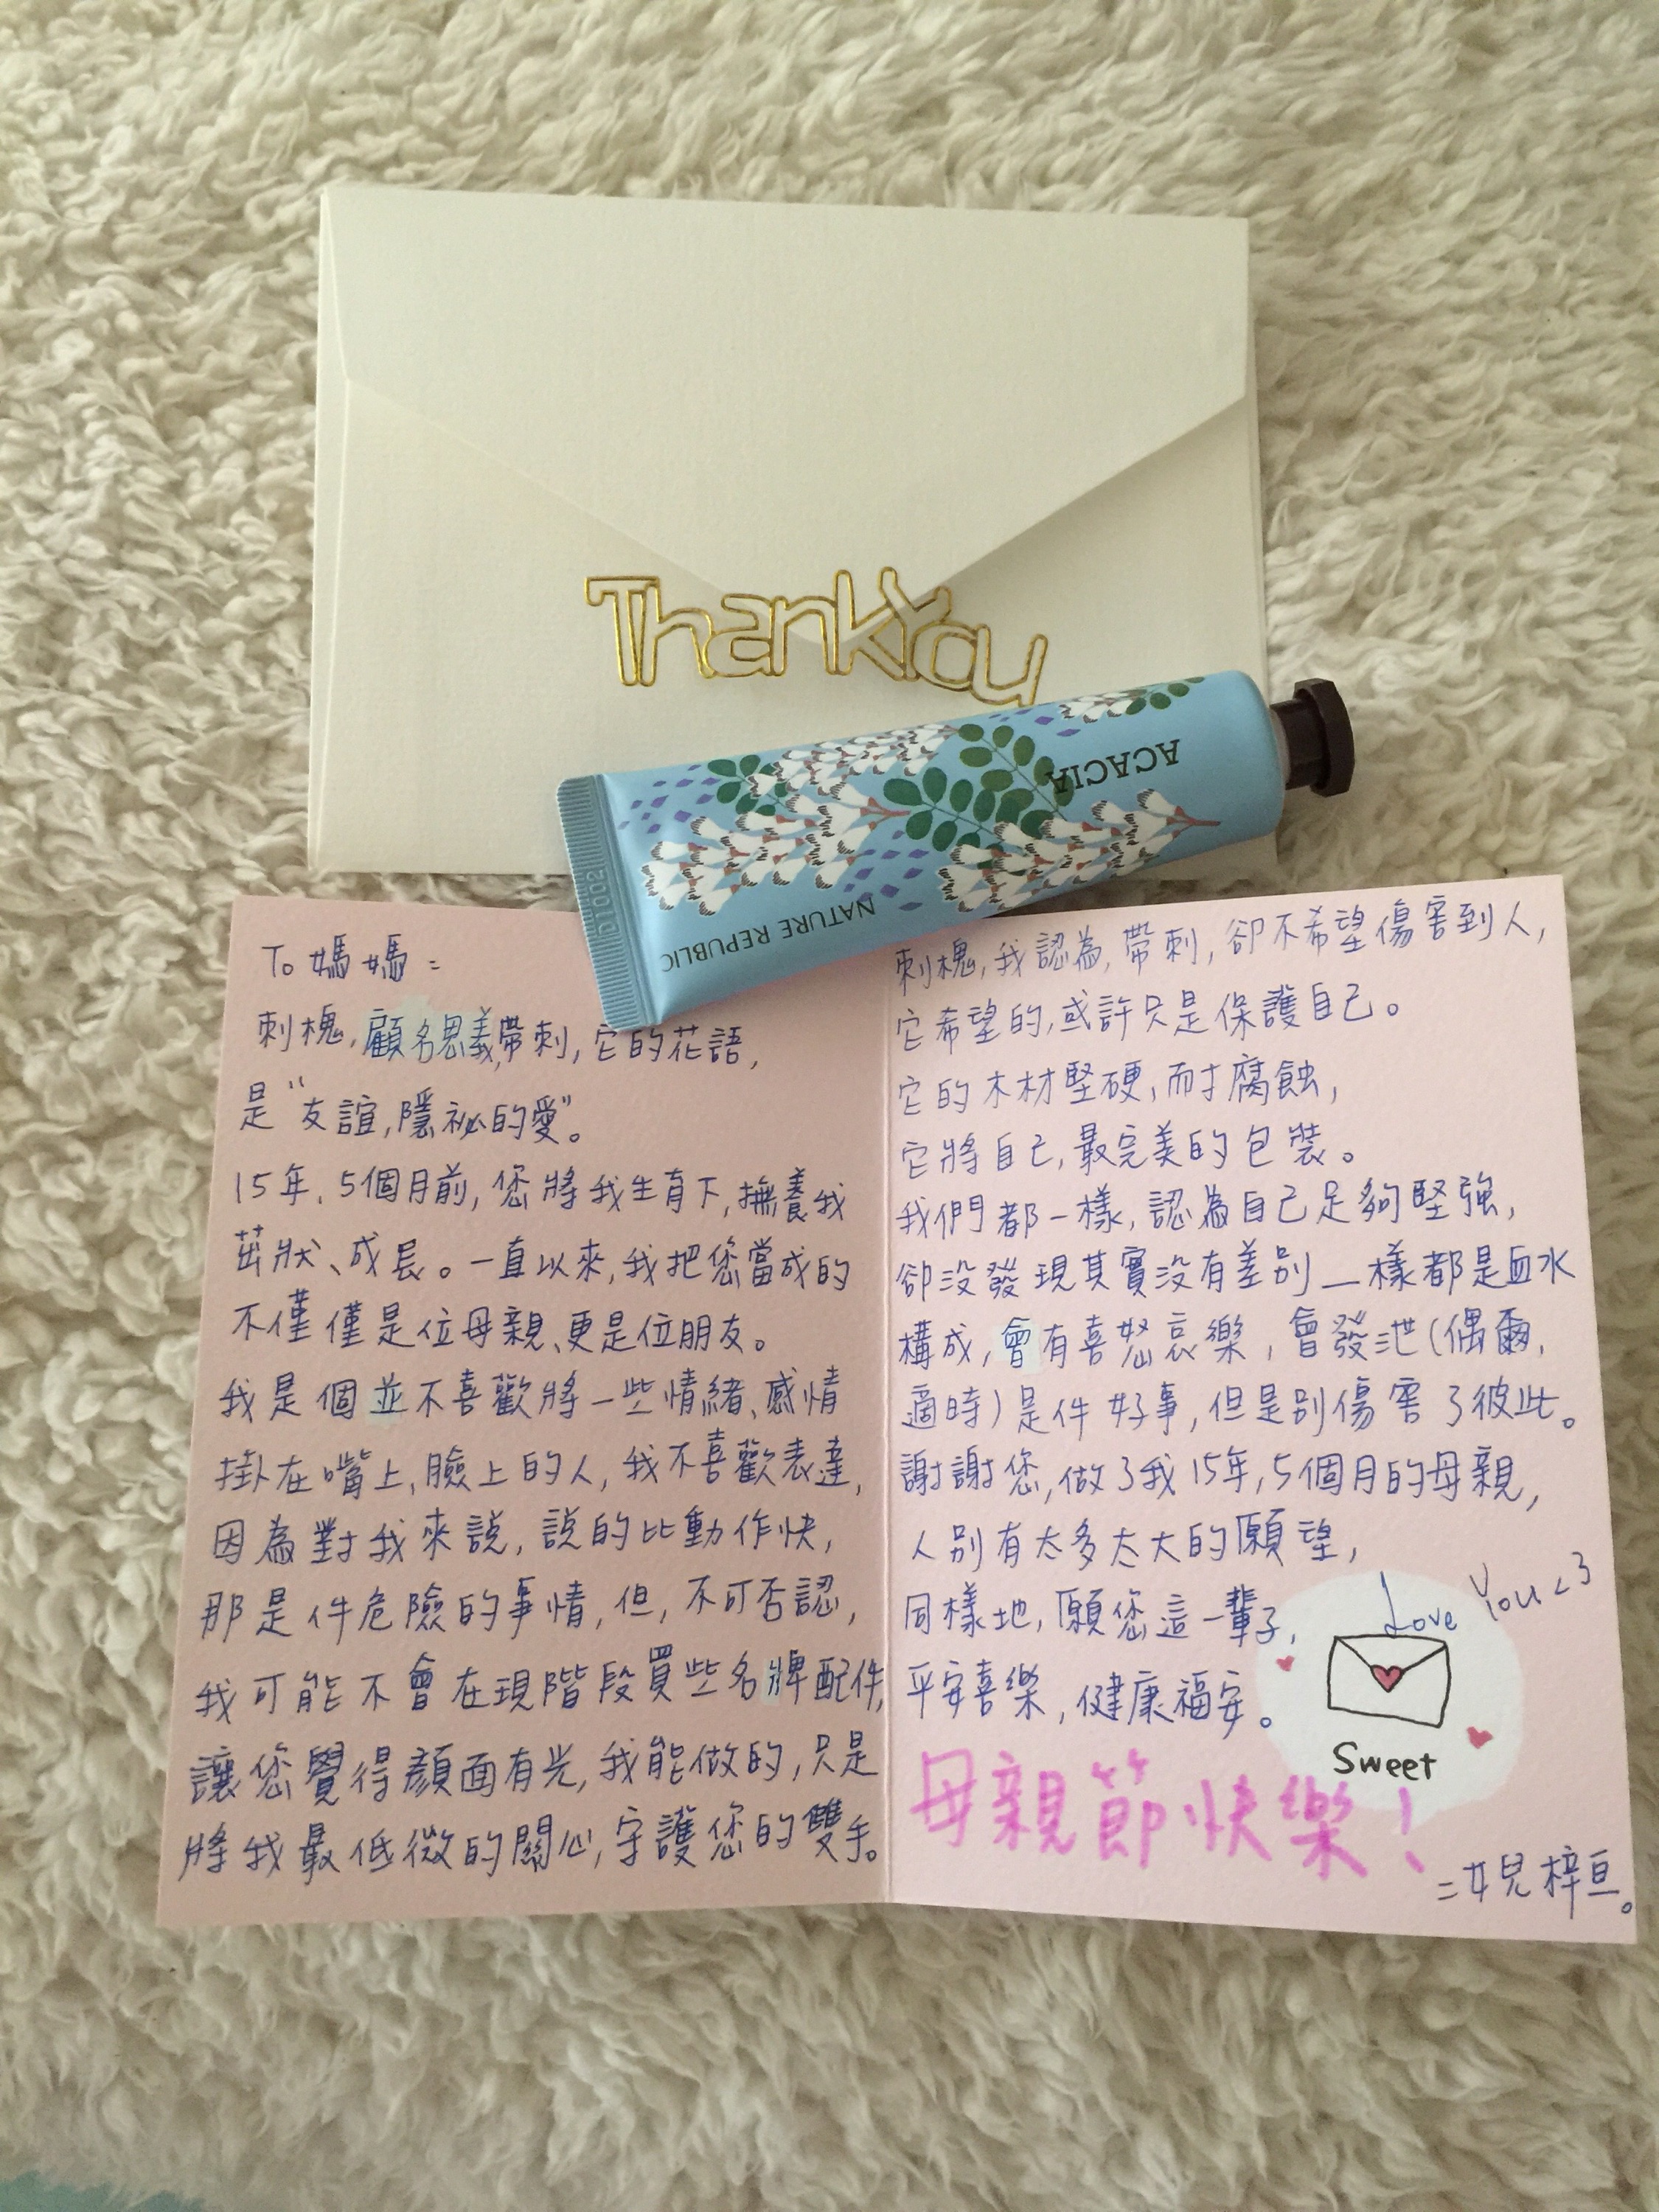 ThankYou
ACACIA
NATURE REPUBLIC
To 媽媽:
刺槐,顧名思義,帶刺,它的花語,
是“友誼,隱祕的愛”。
15年,5個月前,您將我生育下,撫養我
茁狀、成長。一直以來,我把您當成的
不僅僅是位母親、更是位朋友。
我是個並不喜歡將一些情緒、感情
掛在嘴上,臉上的人,我不喜歡表達,
因為對我來說,說的比動作快,
那是件危險的事情,但,不可否認,
我可能不會在現階段買些名牌配件,
讓您覺得顏面有光,我能做的,只是
將我最低微的關心,守護您的雙手。
刺槐,我認為,帶刺,卻不希望傷害到人,
它希望的,或許只是保護自己。
它的木材堅硬,耐腐蝕,
它將自己,最完美的包裝。
我們都一樣,認為自己足夠堅強,
卻沒發現其實沒有差別_一樣都是血水
構成,會有喜怒哀樂,會發泄(偶爾,
適時)是件好事,但是別傷害了彼此。
謝謝您,做了我15年,5個月的母親,
人別有太多太大的願望,
同樣地,願您這一輩子,
平安喜樂,健康福安。
Love You <3
Sweet
母親節快樂!
=女兒梓亘。